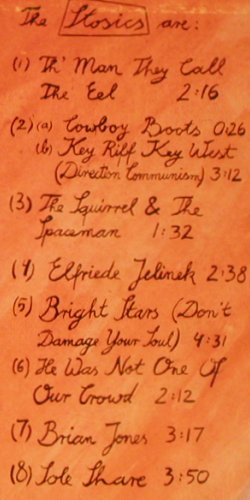 The Stosics are:
(1) Th' Man They Call
The Eel 2:16
(2) (a) Cowboy Boots 0:26
(b) Key Riff Key West
(Direction Communism) 3:12
(3) The Squirrel & The
Spaceman 1:32
(4) Elfriede Jelinek 2:38
(5) Bright Stars (Don't
Damage Your Soul) 4:31
(6) He Was Not One Of
Our Crowd 2:12
(7) Brian Jones 3:17
(8) Sole Share 3:50